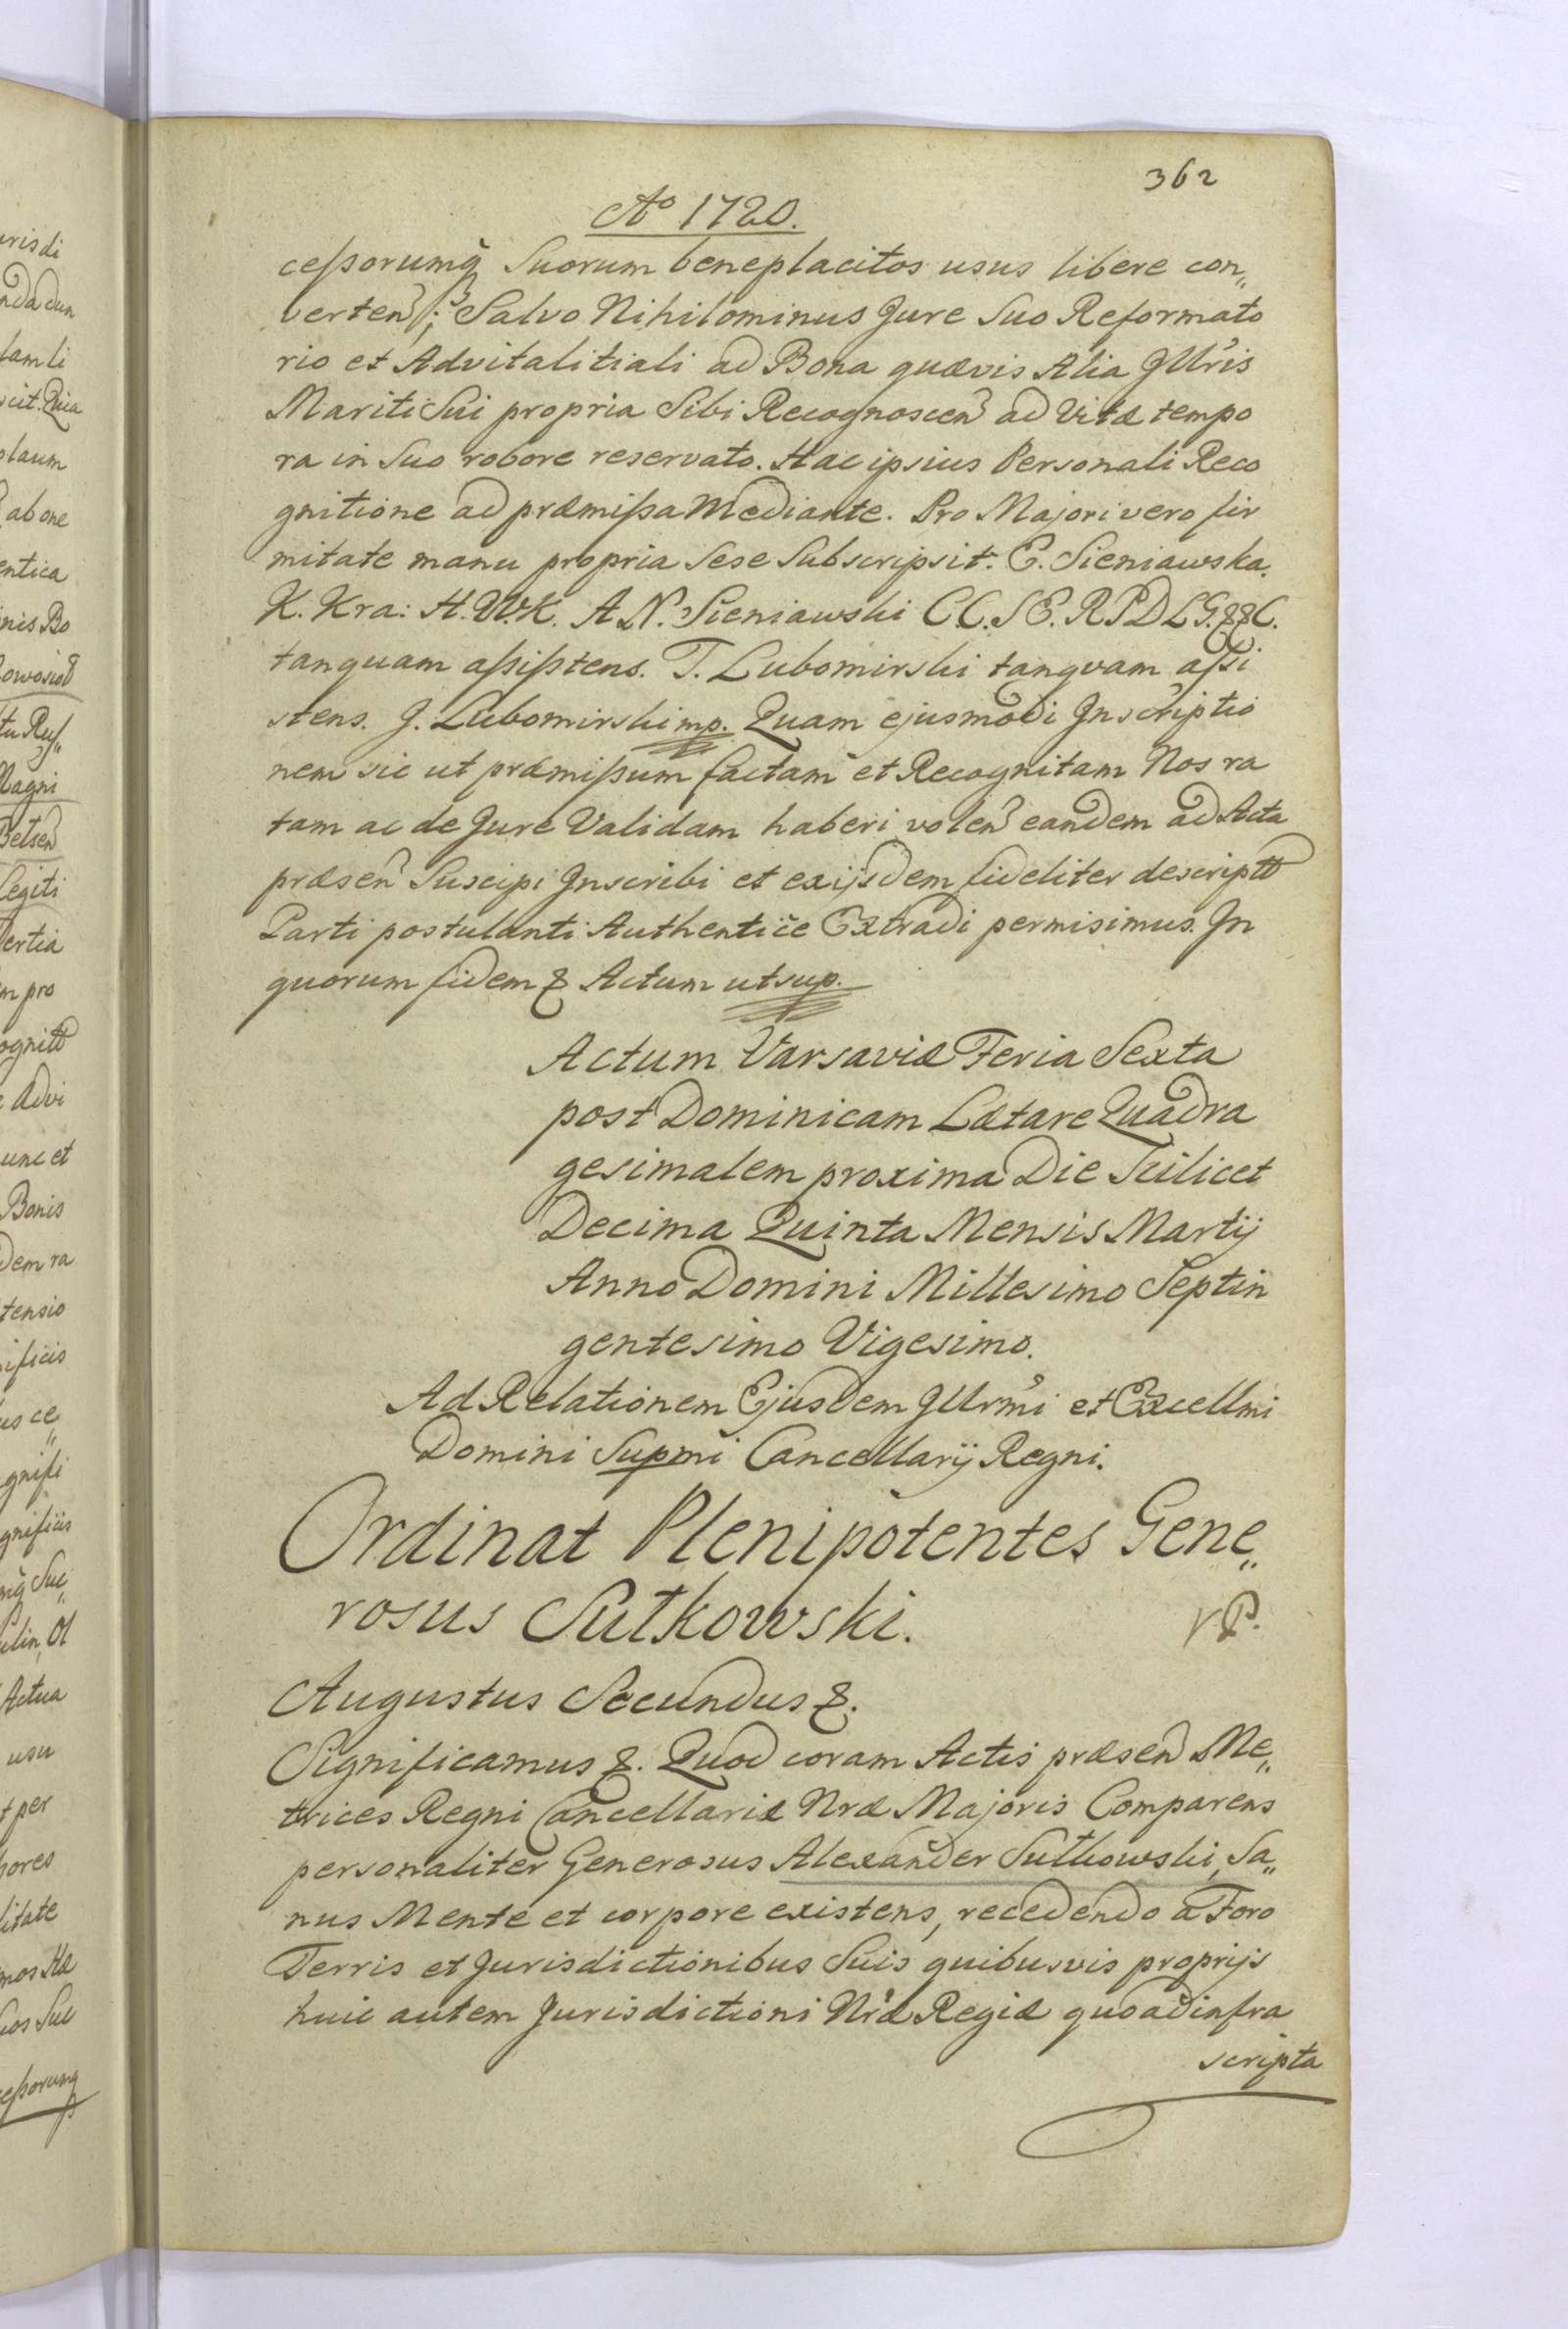 362
Ao 1720.
ceßorumq̃ Suorum beneplacitos usus libere con„
verten̄; Salvo Nihilominus Jure Suo Reformato
rio et Advitalitiali ad Bona quævis Alia Jllris
Mariti Sui propria Sibi Recognoscen̄ ad Vitæ tempo
ra in Suo robore reservato. Hac ipsius Personali Reco
gnitione ad præmißa Mediante. Pro Majori vero fir
mitate manu propria Sese Subscripsit. E. Sieniawska
K. Kra: H.W.K. A N. Sieniawski C.C.S E. R P D L G.
tanquam aßistens. T. Lubomirski tanqvam aßi
stens. J. Lubomirski mp. Quam ejusmodi Jnscriptio
nem sic ut præmißum factam et Recognitam Nos ra
tam ac de Jure Validam haberi volen̄ eandem ad Acta
præsen̄ Suscipi Jnscribi et exijsdem fideliter descriptt
Parti postulanti Authentice Extradi permisimus. Jn
quorum fidem & Actum ut sup.
Actum Varsaviæ Feria Sexta
post Dominicam Lætare Quadra
gesimalem proxima Die Scilicet
Decima Quinta Mensis Martij
Anno Domini Millesimo Septin
gentesimo Vigesimo.
Ad Relationem Ejusdem Jllrmi et Excellmi
Domini Supmi Cancellarij Regni.
Ordinat Plenipotentes Gene„
rosus Sutkowski.
Augustus Secundus &.
Significamus &. Quod coram Actis præsen̄ Me„
trices Regni Cancellariæ Nræ Majoris Comparens
personaliter Generosus Alexander Sutkowski, Sa„
nus Mente et corpore existens, recedendo a Foro
Terris et Jurisdictionibus Suis quibusvis proprijs
huic autem Jurisdictioni Nræ Regiæ quoad infra
scripta